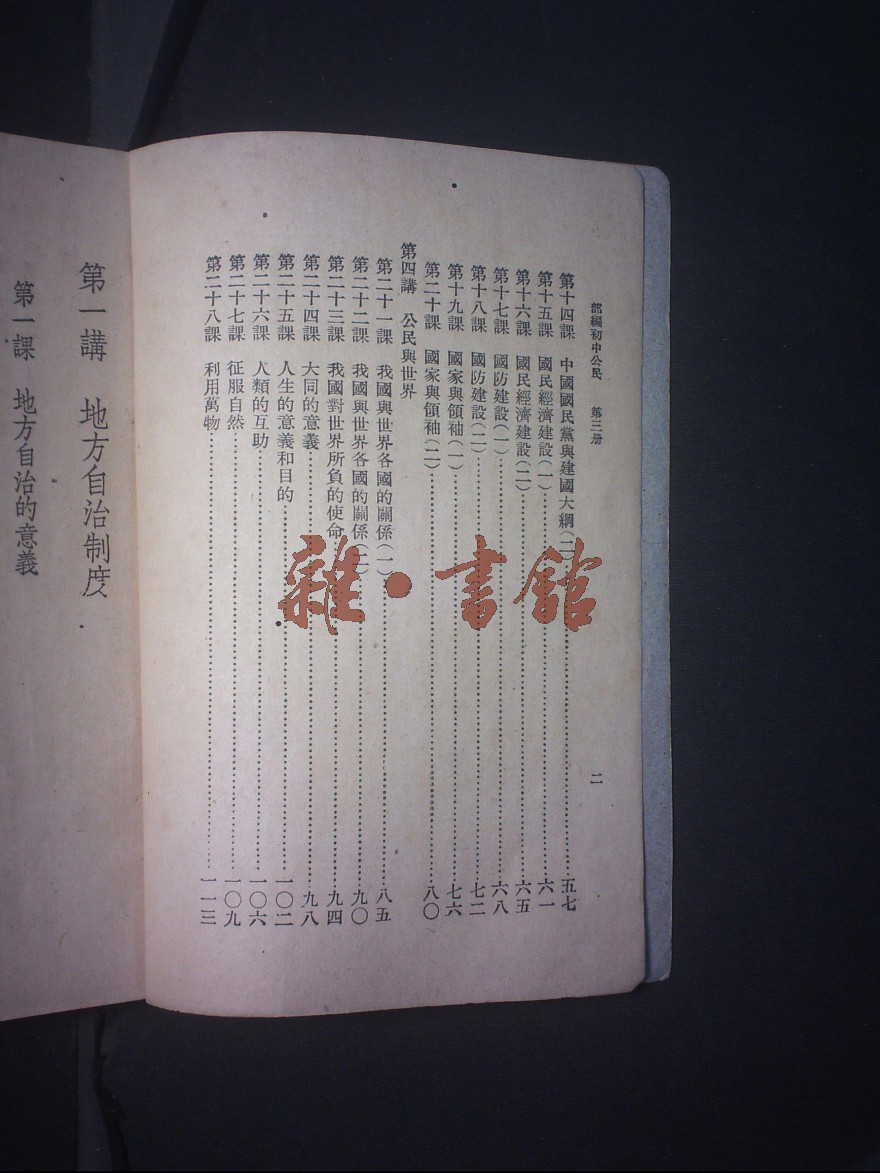 部編初中公民　第三册
二
第十四課　中國國民黨與建國大綱(二)……五七
第十五課　國民經濟建設(一)……六一
第十六課　國民經濟建設(二)……六五
第十七課　國防建設(一)……六八
第十八課　國防建設(二)……七二
第十九課　國家與領袖(一)……七六
第二十課　國家與領袖(二)……八〇
第四講　公民與世界
第二十一課　我國與世界各國的關係(一)……八五
第二十二課　我國與世界各國的關係(二)……九〇
第二十三課　我國對世界所負的使命……九四
第二十四課　大同的意義……九八
第二十五課　人生的意義和目的……一〇二
第二十六課　人類的互助……一〇六
第二十七課　征服自然……一〇九
第二十八課　利用萬物……一一三
第一講　地方自治制度
第一課　地方自治的意義
雜·書館